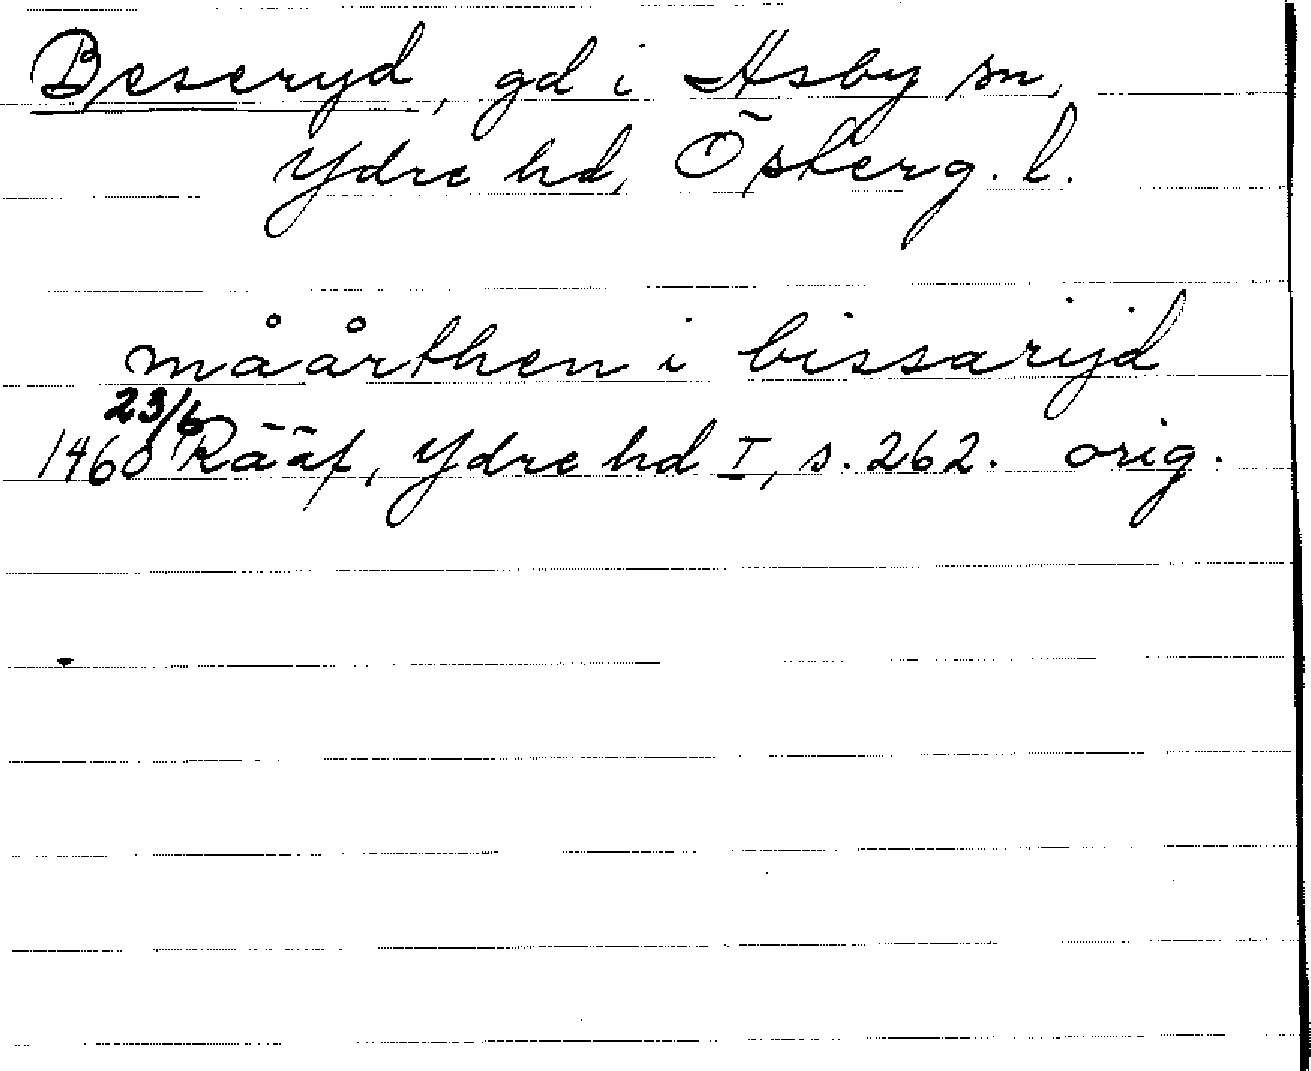 Beseryd, gd i Asby sn,
Ydre hd, Österg. l.
måårthen i bissarijd
23/6
1460 Rääf, Ydre hd I, s. 262. orig.